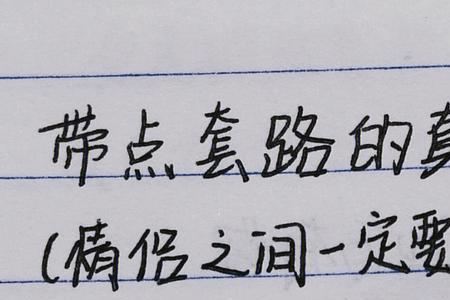 带点套路的真
(情侣之间一定要